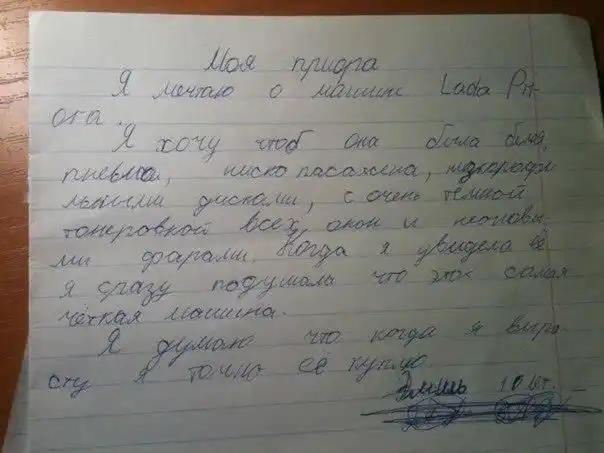 Моя приора
Я мечтаю о машине Lada Pri-
ora.
Я хочу чтоб она была белая,
пневма, ниско пасажена, низкопрофи
льными дисками, с очень тёмной
тонеровкой всех окон и неоновы-
ми фарами. Когда я увидела её
я сразу подумала что это самая
чёткая машина.
Я думаю что когда я выра-
сту я точно её куплю.
10 лет.